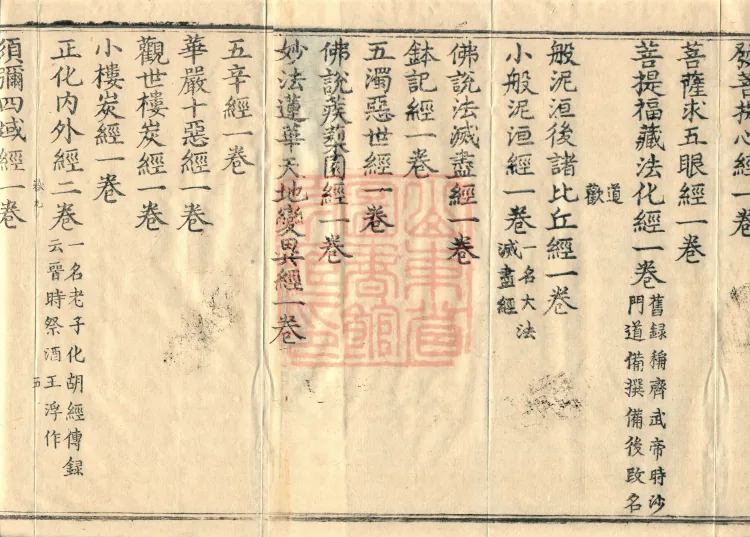 發菩提心經一卷
菩薩求五眼經一卷
菩提福藏法化經一卷舊録稱齊武帝時沙
門道備撰備後改名
道
歡
般泥洹後諸比丘經一卷
小般泥洹經一卷一名大法
滅盡經
佛說法滅盡經一卷
鉢記經一卷
五濁惡世經一卷
佛說蒺䔧園經一卷
妙法蓮華天地變異經一卷
五辛經一卷
華嚴十惡經一卷
觀世樓炭經一卷
小樓炭經一卷
正化内外經二卷一名老子化胡經傳録
云晉時祭酒王浮作
須彌四域經一卷